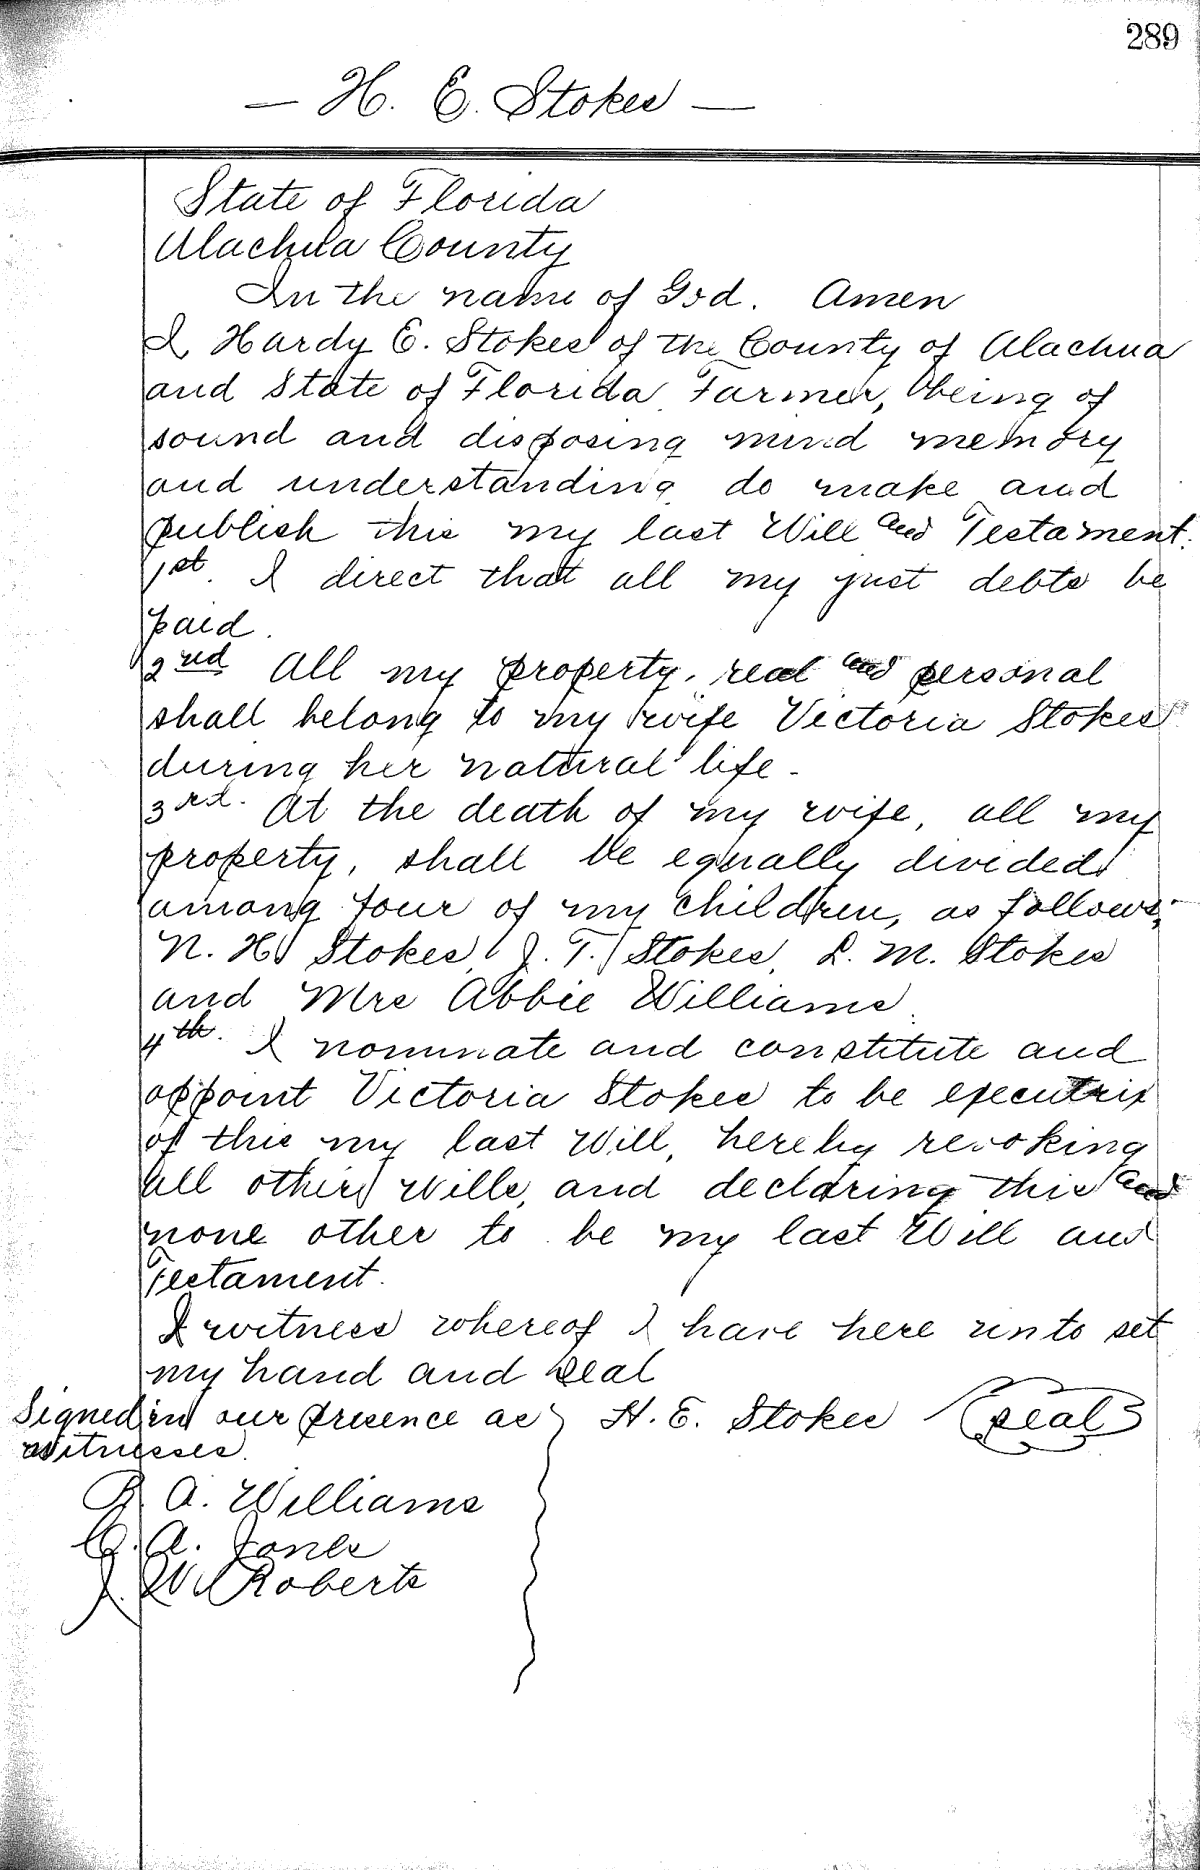 289
— H. E. Stokes —
State of Florida
Alachua County
In the name of God. Amen
I, Hardy E. Stokes of the County of Alachua
and State of Florida Farmer, being of
sound and disposing mind memory
and understanding do make and
publish this my last Will and Testament.
1st. I direct that all my just debts be
paid.
2nd All my property, real and personal
shall belong to my wife Victoria Stokes
during her natural life -
3rd. At the death of my wife, all my
property, shall be equally divided
among four of my children, as follows;
N. H. Stokes, J. T. Stokes, L. M. Stokes
and Mrs Abbie Williams.
4th. I nominate and constitute and
appoint Victoria Stokes to be executrix
of this my last Will, hereby revoking
all other wills, and declaring this and
none other to be my last Will and
Testament.
I witness whereof I have here unto set
my hand and seal
Signed in our presence as H. E. Stokes (seal)
witnesses.
R A. Williams
C. A. Jones
J. W. Roberts